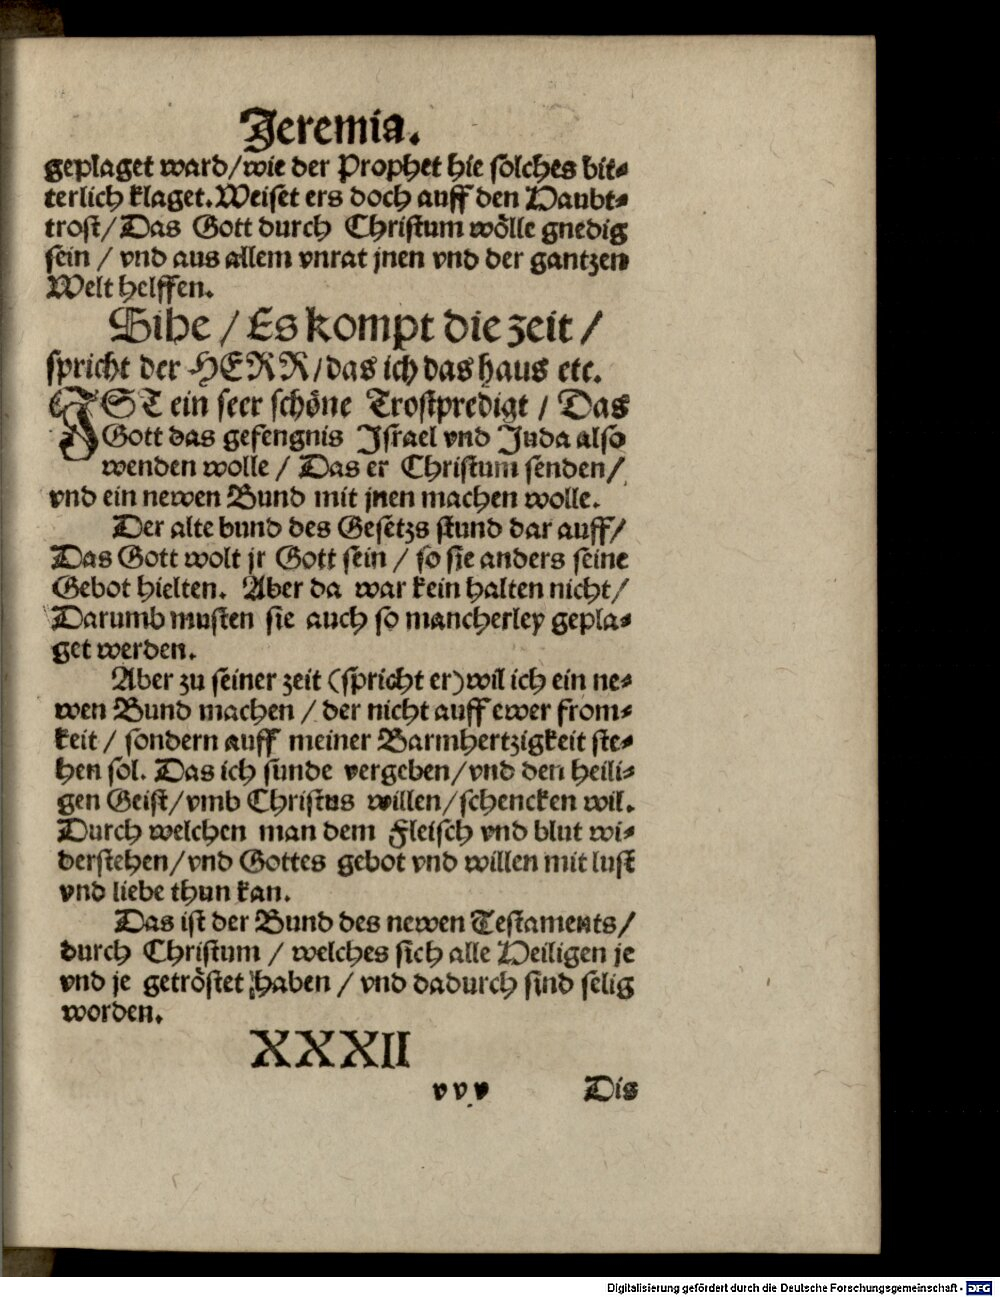 Jeremia.
geplaget ward/wie der Prophet hie solches bit-
terlich klaget. Weiset ers doch auff den Haubt-
trost/Das Gott durch Christum wölle gnedig
sein / vnd aus allem vnrat jnen vnd der gantzen
Welt helffen.
Sihe / Es kompt die zeit /
spricht der HERR/das ich das haus etc.
IST ein seer schöne Trostpredigt / Das
Gott das gefengnis Jsrael vnd Juda also
wenden wolle / Das er Christum senden/
vnd ein newen Bund mit jnen machen wolle.
Der alte bund des Gesetzs stund dar auff/
Das Gott wolt jr Gott sein / so sie anders seine
Gebot hielten. Aber da war kein halten nicht/
Darumb musten sie auch so mancherley gepla-
get werden.
Aber zu seiner zeit (spricht er) wil ich ein ne-
wen Bund machen / der nicht auff ewer from-
keit / sondern auff meiner Barmhertzigkeit ste-
hen sol. Das ich sunde vergeben/vnd den heili-
gen Geist/vmb Christus willen/schencken wil.
Durch welchen man dem Fleisch vnd blut wi-
derstehen/vnd Gottes gebot vnd willen mit lust
vnd liebe thun kan.
Das ist der Bund des newen Testaments/
durch Christum / welches sich alle Heiligen je
vnd je getröstet haben / vnd dadurch sind selig
worden.
XXXII
v v v Dis
Digitalisierung gefördert durch die Deutsche Forschungsgemeinschaft - DFG